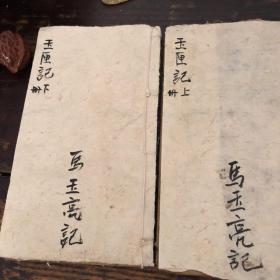 玉匣記
上冊
馬玉亮記
玉匣記
下冊
馬玉亮記